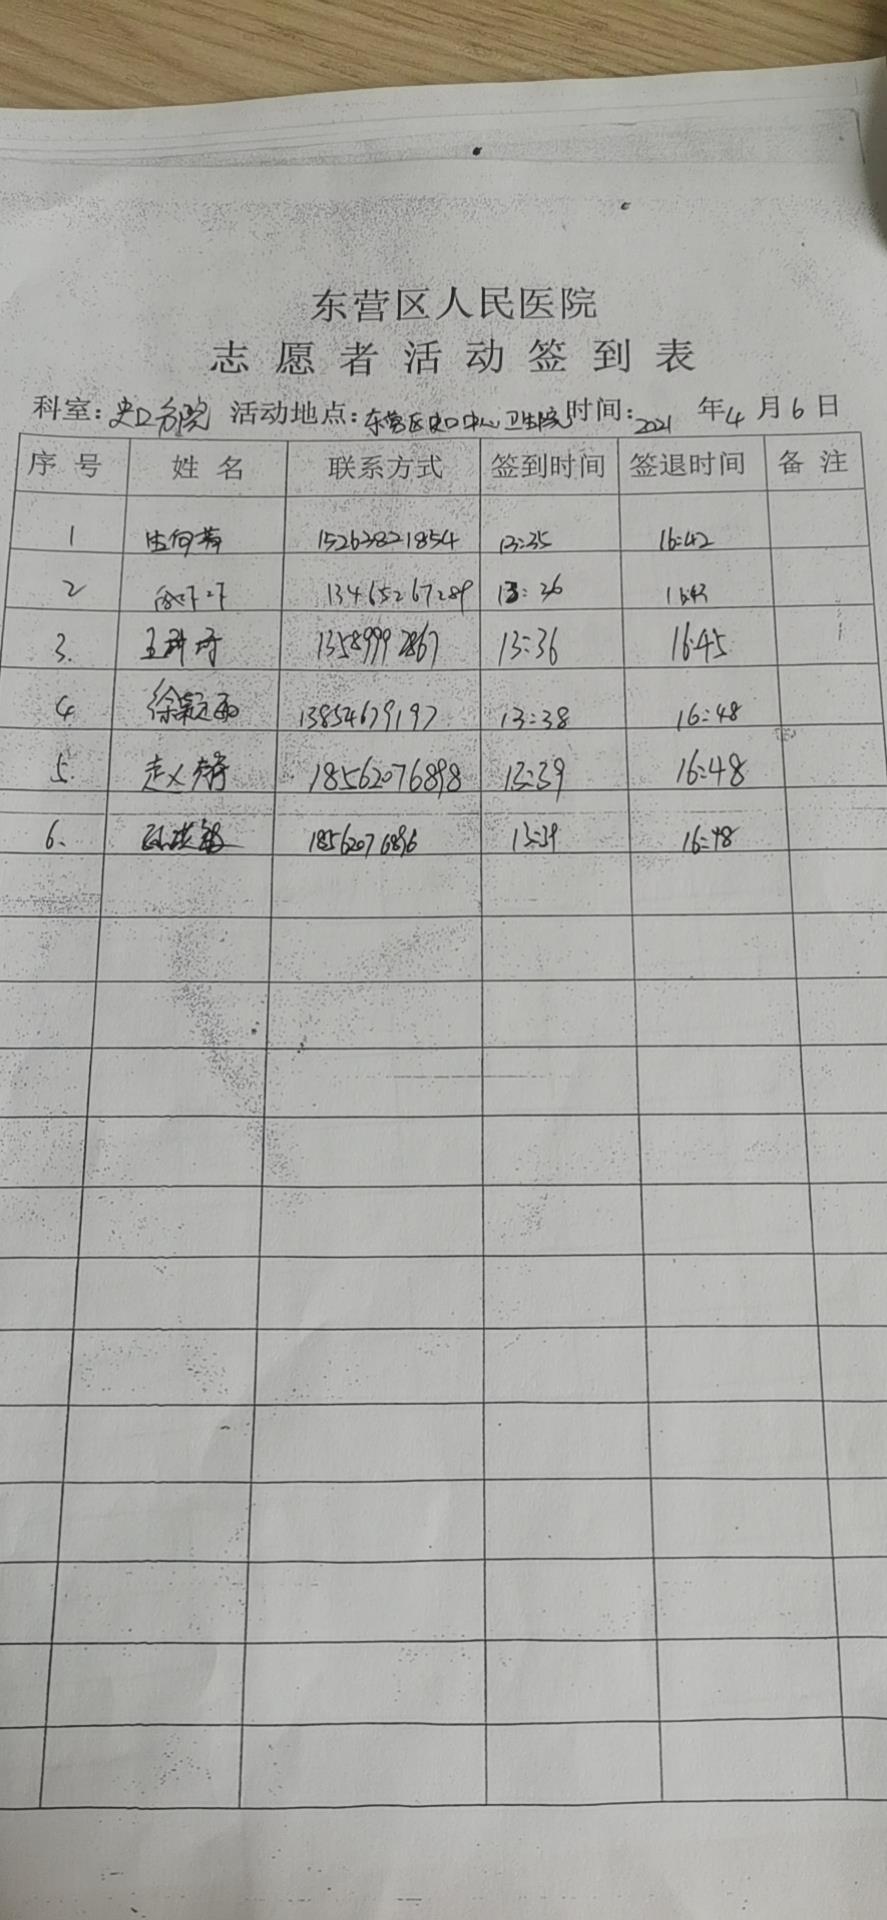 东营区人民医院
志愿者活动签到表
科室：史口分院 活动地点：东营区史口中心卫生院 时间：2021 年 4 月 6 日
序号 姓名 联系方式 签到时间 签退时间 备注
1 15263821854 13:35 16:42
2 13465267289 13:36
3. 13589992867 13:36 16:45
4 徐颖雨 13854679197 13:38 16:48
5. 18562076898 13:39 16:48
6. 18562076896 13:39 16:48